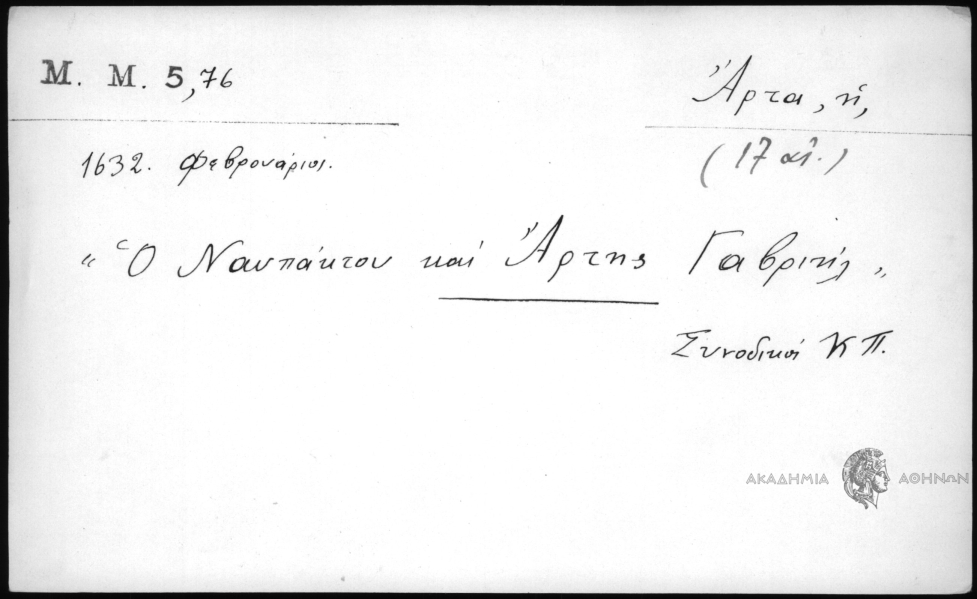 Μ. Μ. 5,76
Ἄρτα, ἡ,
1632. Φεβρουάριος.
(17 αἰ.)
"Ὁ Ναυπάκτου καί Ἄρτης Γαβριήλ"
Συνοδικοί Κ Π.
ΑΚΑΔΗΜΙΑ ΑΘΗΝΩΝ